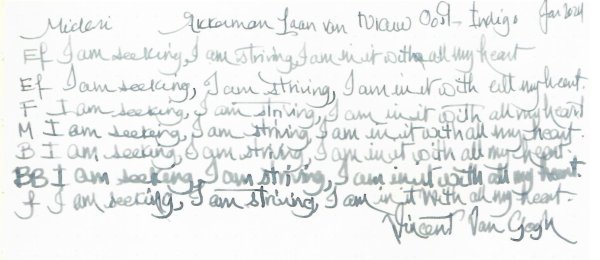 Midori Akkerman Laan van Nieuw Oost-Indigo Jan 2024
Ef I am seeking, I am striving, I am in it with all my heart
Ef I am seeking, I am striving, I am in it with all my heart.
F I am seeking, I am striving, I am in it with all my heart
M I am seeking, I am striving, I am in it with all my heart.
B I am seeking, I am striving, I am in it with all my heart
BB I am seeking, I am striving, I am in it with all my heart.
f I am seeking, I am striving, I am in it with all my heart.
Vincent Van Gogh